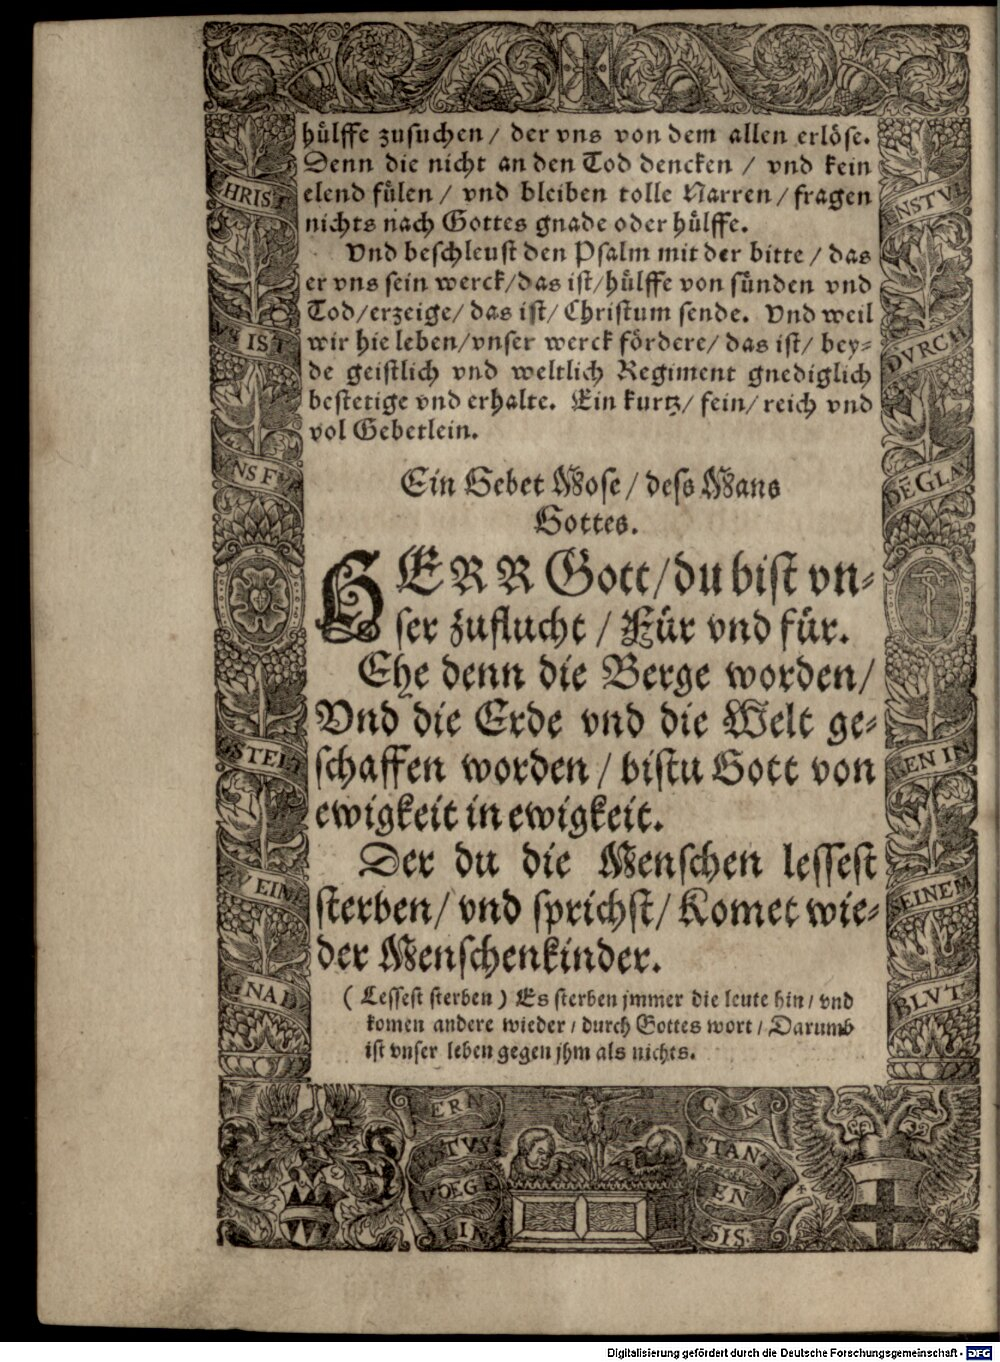 hülffe zusuchen / der vns von dem allen erlöse.
Denn die nicht an den Tod dencken / vnd kein
elend fülen / vnd bleiben tolle Narren / fragen
nichts nach Gottes gnade oder hülffe.
Vnd beschleust den Psalm mit der bitte / das
er vns sein werck/das ist/hülffe von sünden vnd
Tod/erzeige/ das ist/ Christum sende. Vnd weil
wir hie leben/vnser werck fördere/ das ist/ bey-
de geistlich vnd weltlich Regiment gnediglich
bestetige vnd erhalte. Ein kurtz/ fein/ reich vnd
vol Gebetlein.
Ein Gebet Mose / dess Mans
Gottes.
HERR Gott/du bist vn-
ser zuflucht / Für vnd für.
Ehe denn die Berge worden/
Vnd die Erde vnd die Welt ge-
schaffen worden / bistu Gott von
ewigkeit in ewigkeit.
Der du die Menschen lessest
sterben/ vnd sprichst/ Komet wie-
der Menschenkinder.
( Lessest sterben ) Es sterben jmmer die leute hin/ vnd
komen andere wieder / durch Gottes wort / Darumb
ist vnser leben gegen jhm als nichts.
CHRIST
VS IST
VNS FVR
GSTELT
ZV EIM
GNAD
ENSTVL
DVRCH
DĒ GLA
BEN IN
SEINEM
BLVT
ERN
STVS
VOEGE
LIN
CON
STANTI
EN
SIS
Digitalisierung gefördert durch die Deutsche Forschungsgemeinschaft - DFG